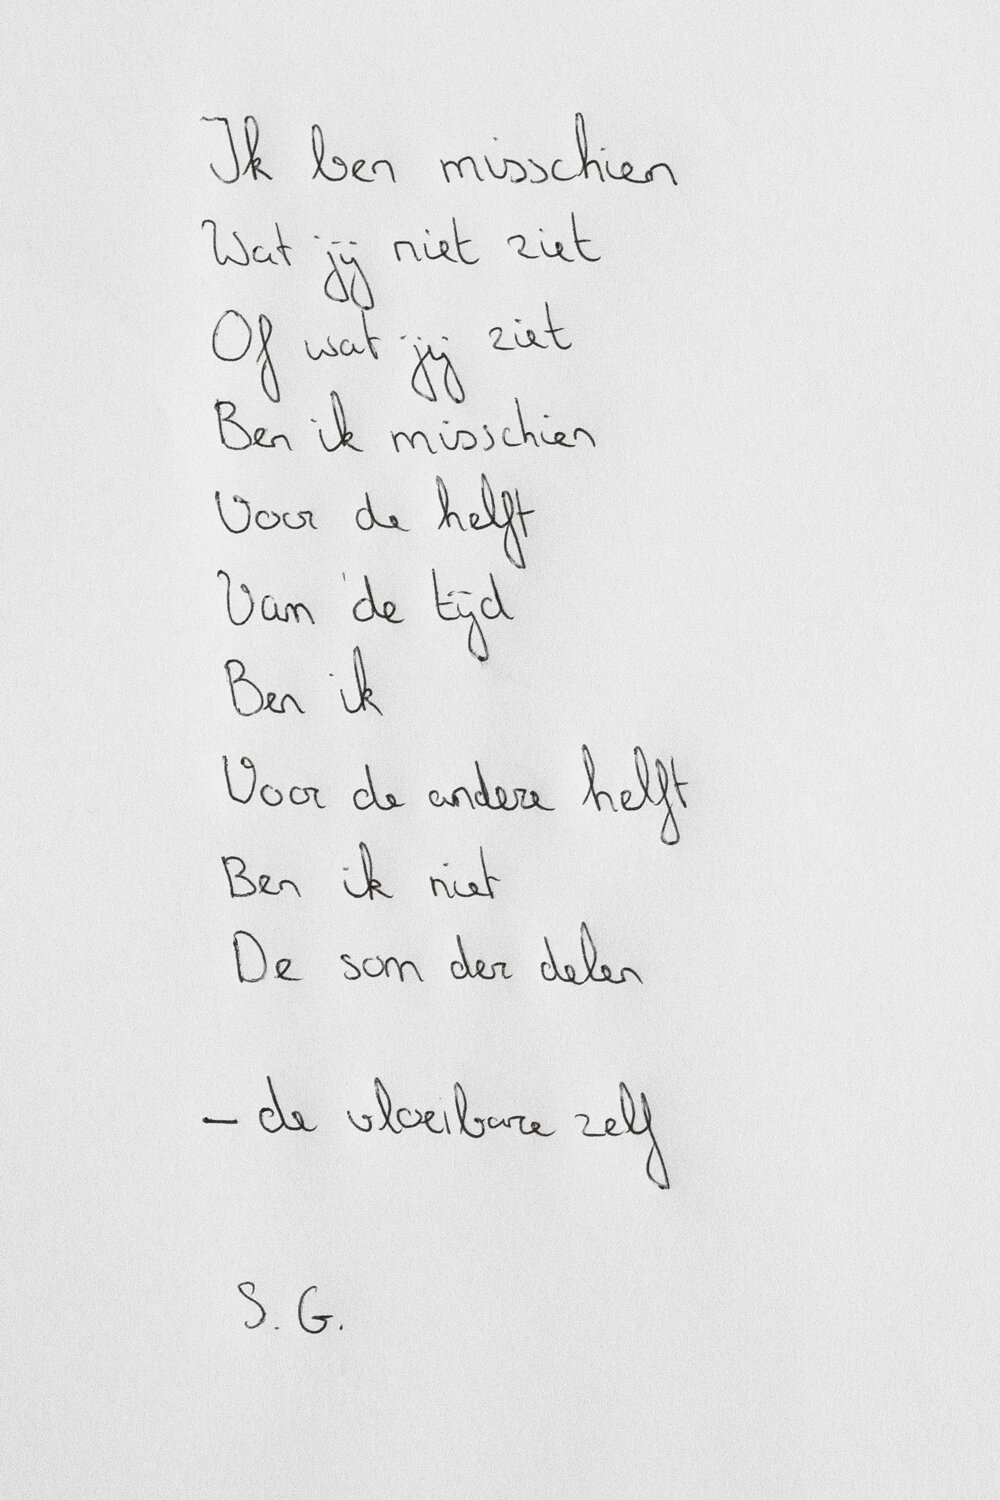 Ik ben misschien
Wat jij niet ziet
Of wat jij ziet
Ben ik misschien
Voor de helft
Van de tijd
Ben ik
Voor de andere helft
Ben ik niet
De som der delen
– de vloeibare zelf
S. G.